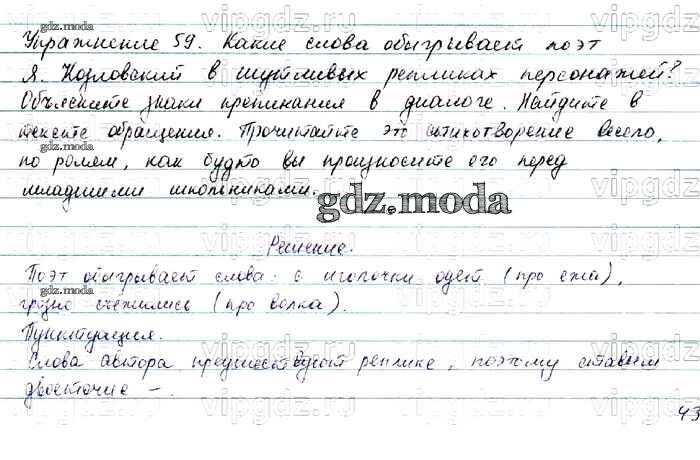 Упражнение 59. Какие слова обыгрывает поэт
Я. Козловский в шутливых репликах персонажей?
Объясните знаки препинания в диалоге. Найдите в
тексте обращения. Прочитайте это стихотворение весело,
по ролям, как будто вы произносите его перед
младшими школьниками.
gdz.moda
Решение.
Поэт обыгрывает слова: с иголочки одет (про ежа),
грозно съежились (про волка).
Пунктуация.
Слова автора предшествуют реплике, поэтому ставим
двоеточие –.
43